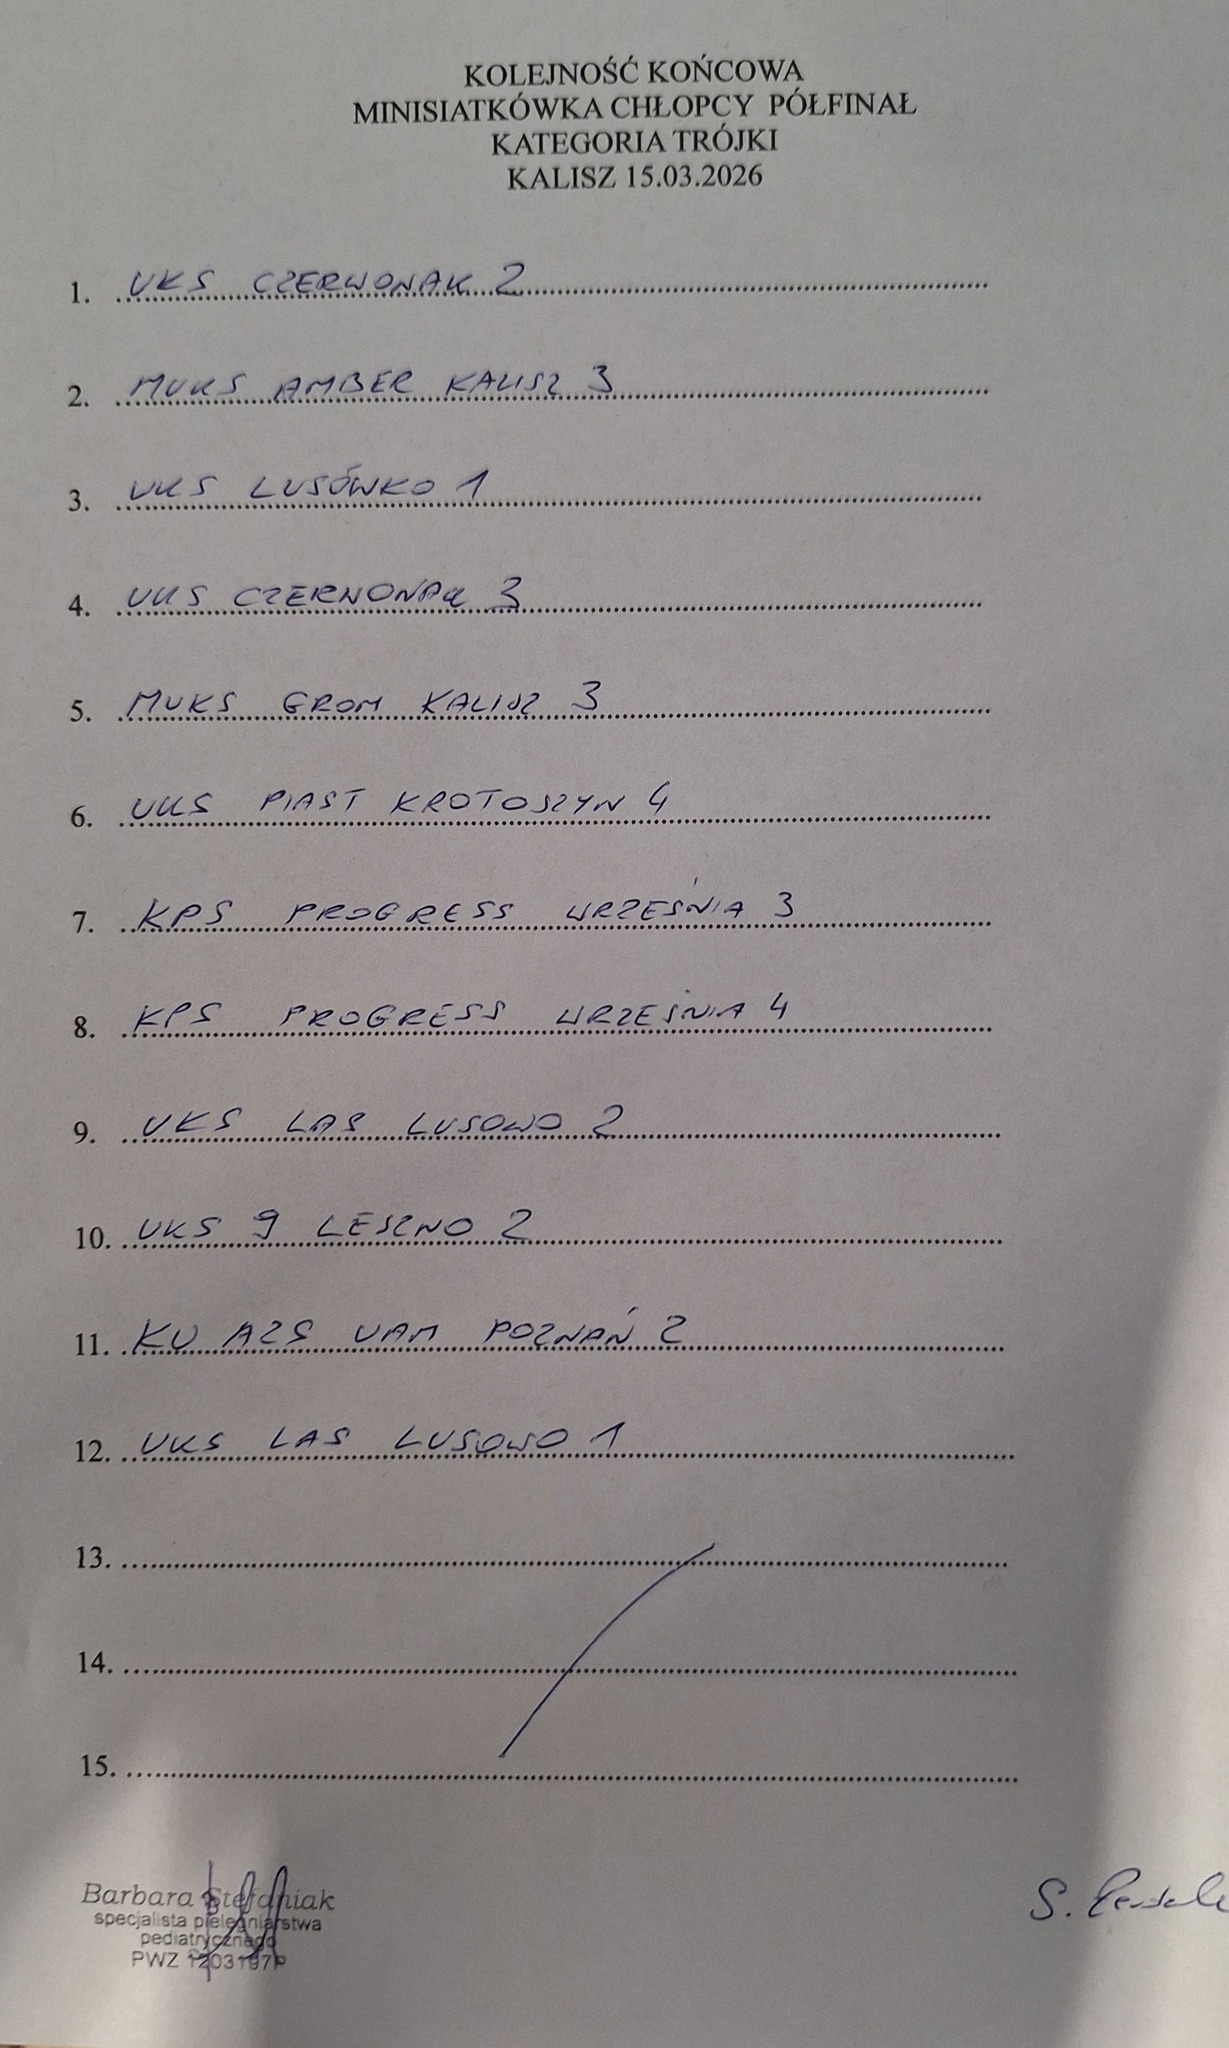 KOLEJNOŚĆ KOŃCOWA
MINISIATKÓWKA CHŁOPCY PÓŁFINAŁ
KATEGORIA TRÓJKI
KALISZ 15.03.2026
1. UKS CZERWONAK 2
2. MUKS AMBER KALISZ 3
3. UKS LUSÓWKO 1
4. UKS CZERWONAK 3
5. MUKS GROM KALISZ 3
6. UKS PIAST KROTOSZYN 4
7. KPS PROGRESS WRZEŚNIA 3
8. KPS PROGRESS WRZEŚNIA 4
9. UKS LAS LUSOWO 2
10. UKS 9 LESZNO 2
11. KU AZS UAM POZNAŃ 2
12. UKS LAS LUSOWO 1
13.
14.
15.
Barbara Stefaniak
specjalista pielęgniarstwa
pediatrycznego
PWZ 1203197P
S.